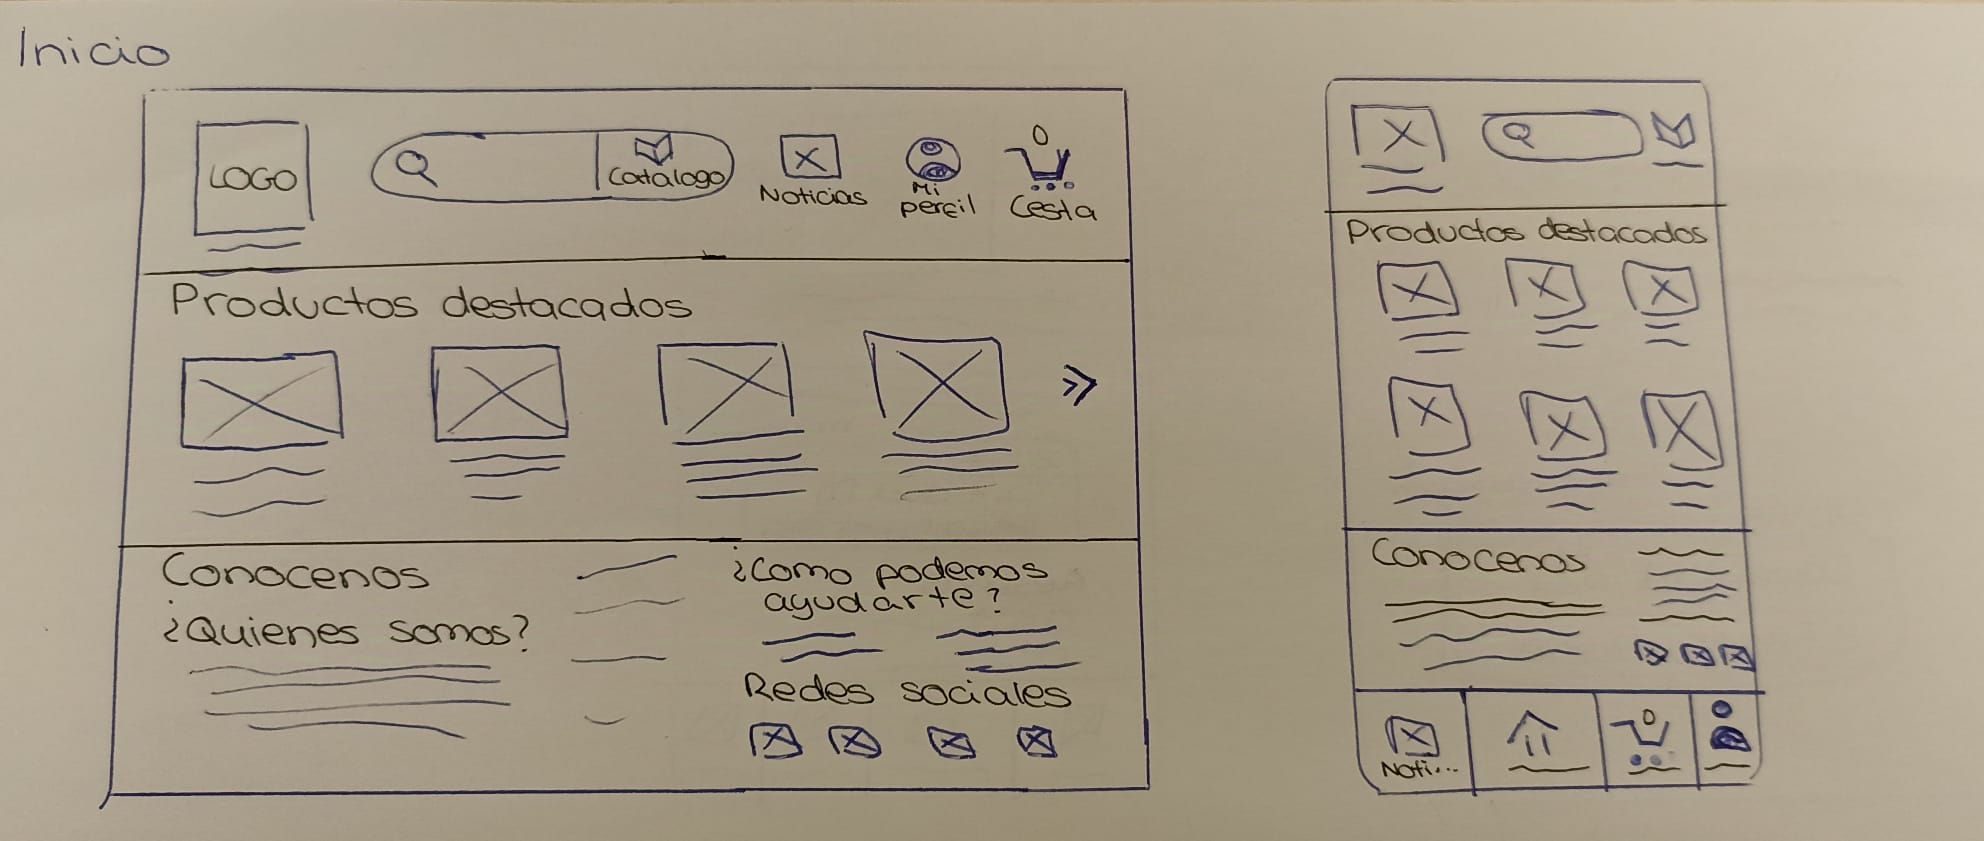 Inicio
LOGO
Catalogo
Noticias
Mi
perfil
0
Cesta
Productos destacados
Conocenos
¿Quienes somos?
¿Como podemos
ayudarte?
Redes sociales
Productos destacados
Conocenos
Noti...
0